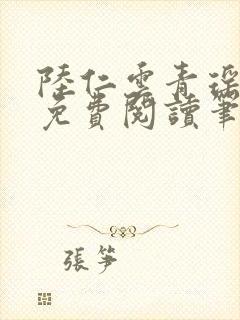 陸仁雲青瑶
免費閱讀筆
張筝